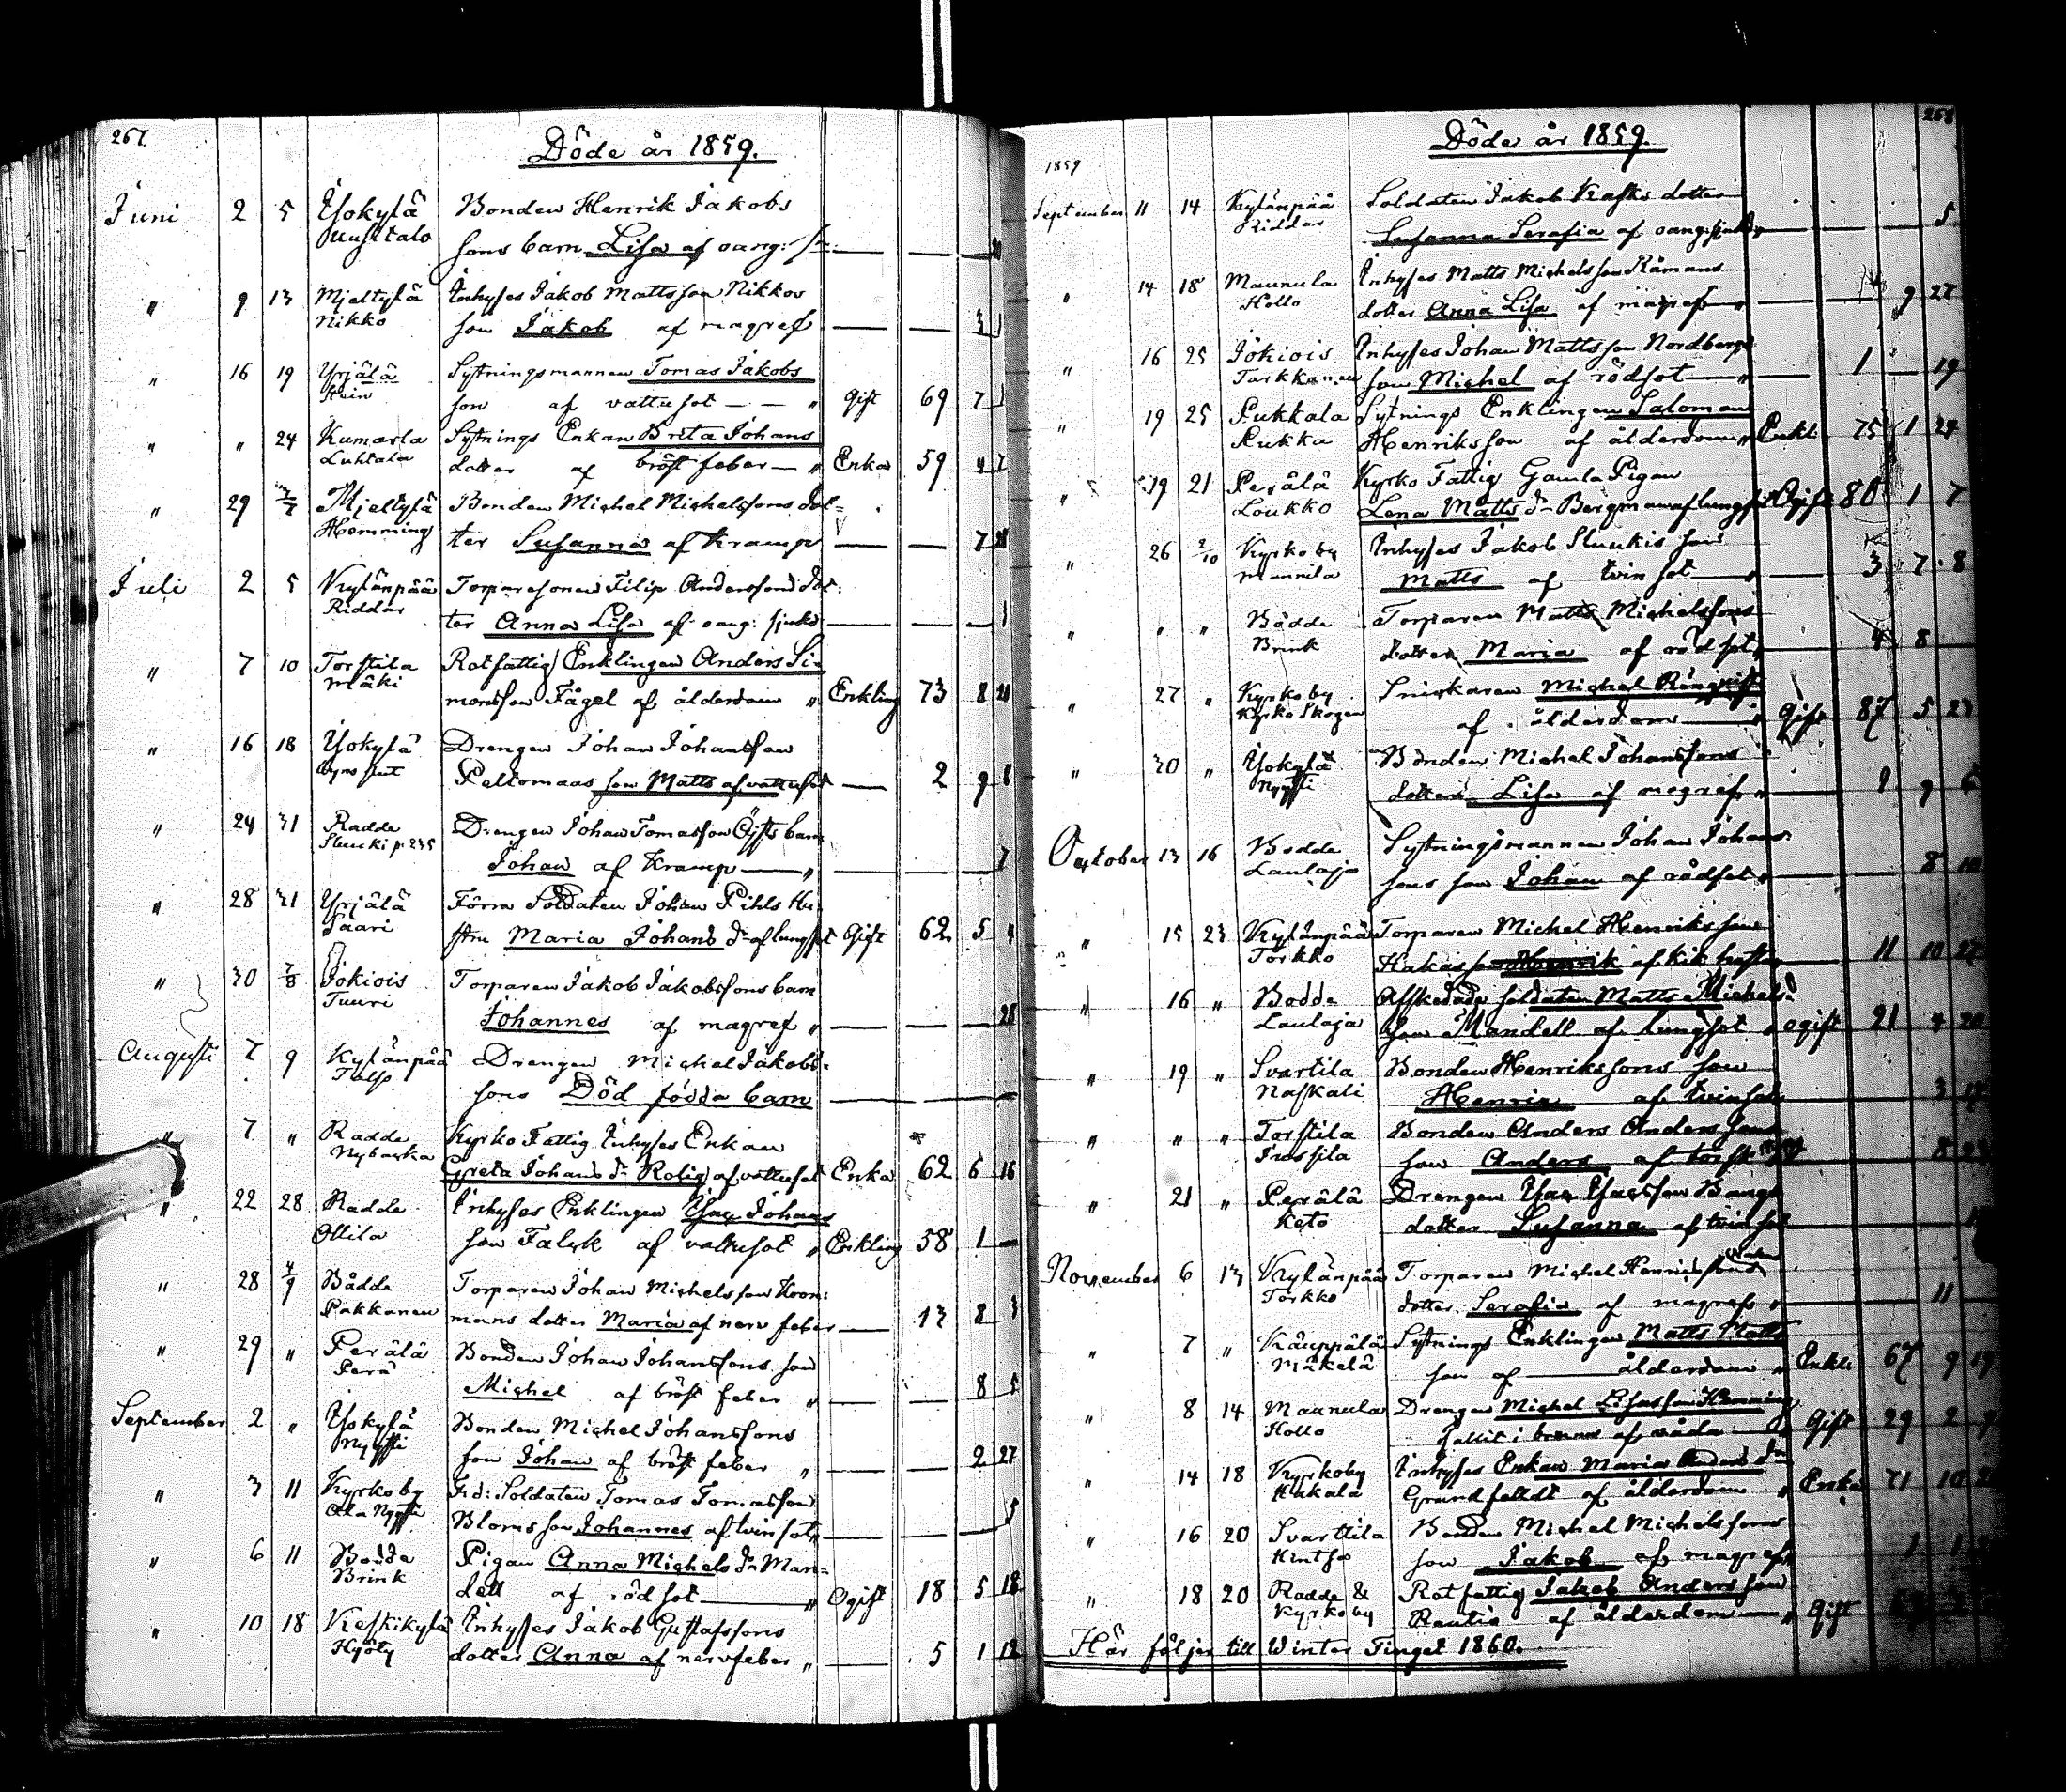 267.
Döde år 1859.
Juni 2 5 Ysokylä Bonden Henrik Jakobs
Uusitalo sons barn Lisa af oang:
" 9 13 Mjeltylä Inhyses Jakob Mattsson Nikkos
Nikko son Jakob af magref 3
" 16 19 Yrjälä Sytningsmannen Tomas Jakobs
son af vattusot — — " Gift 69 7
" " 24 Kumarla Sytnings Enkan Brita Johans
Luhtala dotter af bröst feber — " Enka 59 4 7
" 29 2/7 Mjeltylä Bonden Michel Michelssons dot=
Hemming ter Susanna af Kramp 7 28
Juli 2 5 Kylänpää Torparesonen Filip Anderssons dot:
Riddar ter Anna Lisa af oang: sjukd 1
" 7 10 Torstila Rotfattig Enklingen Anders Si=
Mäki monsson Fågel af ålderdom " Enkling 73 8 28
" 16 18 Ysokylä Drengen Johan Johansson
Peltomaas son Matts af vattusot 2 9 8
" 24 31 Radde Drengen Johan Tomasson Öjsts barn
Slunki p. 235 Johan af Kramp " 7
" 28 31 Yrjälä Förra Soldaten Johan Pihls Hu
Saari stru Maria Johans dr af lungsot Gift 62 5 4
" 30 7/8 Jokiois Torparen Jakob Jakobssons barn
Tuuri Johannes af magref " 28
Augusti 7 9 Kylänpää Drengen Michel Jakobs=
Talso sons Död födda barn
" 7 " Radde Kyrko Fattig Inhyses Enkan
Nybacka Greta Johans dr Rolig af vattusot Enka 62 6 16
" 22 28 Radde Inhyses Enklingen Ysac Johans
Ollila son Falck af vattusot " Enkling 58 1 —
" 28 4/9 Bådde Torparen Johan Michelsson Kron:
Pakkanen mans dotter Maria af nerv feber 13 8 3
" 29 " Perälä Bonden Johan Johanssons son
Perä Michel af bröst feber " 8 5
September 2 " Ysokylä Bonden Michel Johanssons
Nyysti son Johan af bröst feber " 2 27
" 3 11 Kyrkoby Fr.d: Soldaten Tomas Tomasson
Ala Nyysti Bloms son Johannes af tvinsot " 5
" 6 11 Bådde Pigan Anna Michels dr Man=
Brink dell af rödsot " Ogift 18 5 18
" 10 18 Keskikylä Inhyses Jakob Gustafssons
Hyöty dotter Anna af nervfeber " 5 1 12
268
Döde år 1859.
1859
September 11 14 Kylänpää Soldaten Jakob Krafts dotter
Riddar Susanna Serafia af oang:sjukd 5
" 14 18 Maunula Inhyses Matts Michelsson Råmans
Hollo dotter Anna Lisa af magref " 9 27
" 16 25 Jokiois Inhyses Johan Mattsson Nordbergs
Tarkkanen son Michel af rödsot 1 19
" 19 25 Pukkala Sytnings Enklingen Saloman
Pukka Henriksson af ålderdom " Enkl: 75 1 24
" 19 21 Perälä Kyrko Fattig Gamla Pigan
Loukko Lena Matts dr Bergman af lungsot Ogift 80 1 7
" 26 2/10 Kyrkoby Inhyses Jakob Slunkis son
Mannila Matts af tvinsot " 3 7 8
" " " Bådde Torparen Matts Michelssons
Brink dotter Maria af rödsot 4 8
" 27 " Kyrkoby Snickaren Michel Rönqvist
Kyrko Skogen af ålderdom " Gift 87 5 23
" 30 " Ysokylä Bonden Michel Johanssons
Nyysti dotter Lisa af magref " 1 9 6
October 13 16 Bodde Sytningsmannen Johan Johans
Laulaja sons son Johan af rödsot " 8 10
" 15 23 Kylänpää Torparen Michel Henriksson
Torkko Hakas son Henrik af kikhosta 11 10 27
" 16 " Bodde Afskedade soldaten Matts Michels
Laulaja son Mandell af lungsot " ogift 21 4 20
" 19 " Svartila Bonden Henrikssons son
Naskali Henric af tvinsot 3 17
" " " Torstila Bonden Anders Anderssons
Irossila son Anders af 8
" 21 " Perälä Drengen Ysac Ysacsson Bangs
Keto dotter Susanna af tvinsot
November 6 13 Kylänpää Torparen Michel Henrikssons
Torkko dotter Serafia af magref " 11
" 7 " Kauppälä Sytnings Enklingen Matts Matts
Mäkelä son af ålderdom " Enkl: 67 9 19
" 8 14 Maunula Drengen Michel Hemming
Hollo fallit i brunn af våda " Gift 29 2 9
" 14 18 Kyrkoby Inhyses Enkan Maria Anders dr
Hakala Grundfeldt af ålderdom " Enka 71 10
" 16 20 Svarttila Bonden Michel Michelssons
Hintsa son Jakob af magref 1 1
" 18 20 Radde & Rotfattig Jakob Andersson
Kyrkoby Rautio af ålderdom " Gift
Här följer till Winter Tinget 1860.